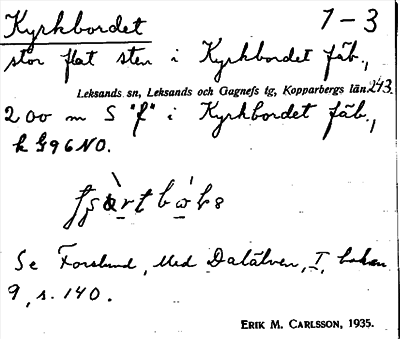 Kyrkbordet 1-3
stor flat sten i Kyrkbordet fäb.,
Leksands sn, Leksands och Gagnefs tg, Kopparbergs län 243.
200 m S "f" i Kyrkbordet fäb.,
k G96NO.
Se Forslund, Med Dalälven, I, boken
9, s. 140.
ERIK M. CARLSSON, 1935.